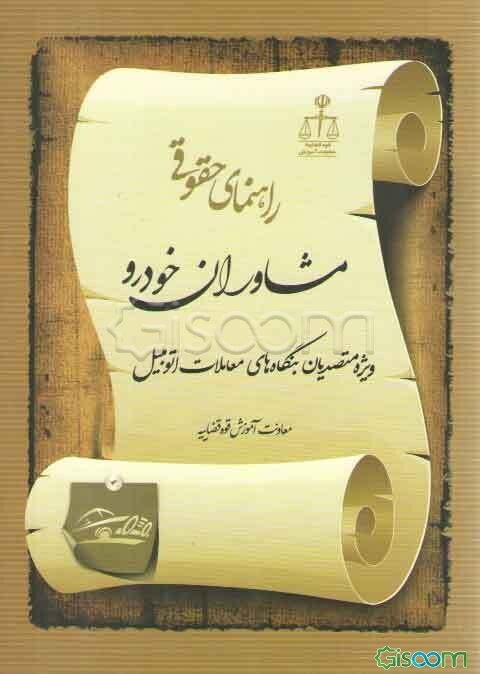 قوه قضاییه
معاونت آموزش
راهنمای حقوقی
مشاوران خودرو
Gisoom
ویژه متصدیان بنگاه‌های معاملات اتومبیل
معاونت آموزش قوه قضاییه
Gisoom